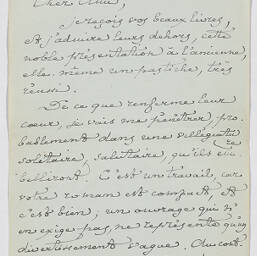 Cher Ami,
je reçois vos beaux livres,
et j'admire leurs dehors, cette
noble présentation à l'ancienne,
elle-même un pastiche, très
réussi.
De ce que renferme leur
cœur, je vais me pénétrer, pro-
bablement dans une villégiatu-
re
solitaire, salutaire, qu'ils em-
belliront. C'est un travail, car
votre roman est compact, et
c'est bien, un ouvrage qui n'
en exige pas, ne représente qu'un
divertissement vague.